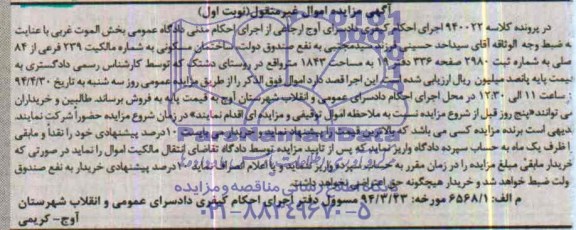 آگهی مزایده اموال غیرمنقول(نوبت اول)
در پرونده کلاسه ۹۴۰۰۲۲ اجرای احکام کیفری دادسرای آوج ارجاعی از اجرای احکام مدنی دادگاه عمومی بخش الموت غربی با عنایت
به ضبط وجه الوثاقه آقای سیداحد حسینی فرزند سیدمجتبی به نفع صندوق دولت ساختمان مسکونی به شماره مالکیت ۲۳۹ فرعی از ۸۴
صلی به شماره ثبت ۲۹۸۰ صفحه ۳۳۶ دفتر ۱۹ به مساحت ۱۸۴۳ متر واقع در روستای دشتک که توسط کارشناس رسمی دادگستری به
قیمت پایه پانصد میلیون ریال ارزیابی شده است این اجرا قصد دارد اموال فوق الذکر را از طریق مزایده عمومی روز سه شنبه به تاریخ ۹۴/۴/۳۰
ز ساعت ۱۱ الی ۱۲:۳۰ در محل اجرای احکام دادسرای عمومی و انقلاب شهرستان آوج به قیمت پایه به فروش برساند. طالبین و خریداران
می توانند «پنج روز قبل از شروع مزایده نسبت به ملاحظه اموال توقیفی و مزایده ای اقدام نمایند» در زمان شروع مزایده حضوراً شرکت نمایند.
بدیهی است برنده مزایده کسی می باشد که بالاترین قیمت را پیشنهاد نماید و خریدار می بایست ۱۰ درصد پیشنهادی خود را نقداً و مابقی
را ظرف یک ماه به حساب سپرده دادگاه واریز نماید که پس از تایید مزایده توسط دادگاه تقاضای انتقال مالکیت اموال را نماید در صورتی که
خریدار مابقی مبلغ مزایده را در زمان مقرر به حساب سپرده واریز ننماید و یا اعلام انصراف نماید ۱۰ درصد پیشنهادی خریدار به نفع صندوق
ولت ضبط خواهد شد و خریدار هیچگونه حق اعتراضی نخواهد داشت.
م الف: ۶۵۶۸/۱ مورخه: ۹۴/۳/۲۳ مسوول دفتر اجرای احکام کیفری دادسرای عمومی و انقلاب شهرستان
آوج - کریمی
پایگاه اطلاع رسانی مناقصه و مزایده
۰۲۱-۸۸۳۴۹۶۷۰-۵